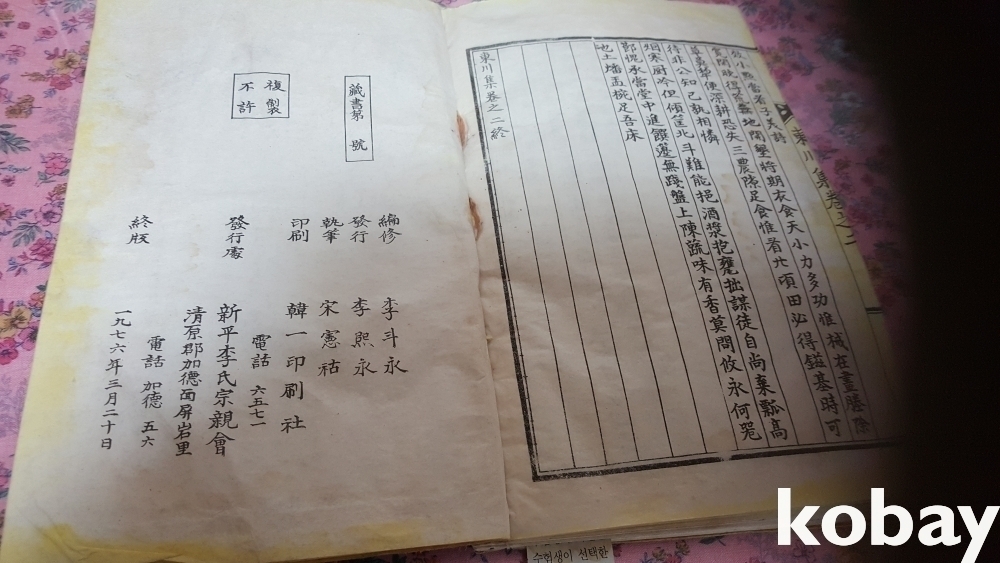 東川集卷之二
地開墾將期衣食天小力多功惟械在
深耕恐失三農隙足食惟看北頃田必得鎡基時可
待非公知己孰相憐
烟寒厨冷但傾筐北斗難能挹酒漿抱甕拙謀徒自尚棄瓢高
承當堂中進饌籩無踐盤上陳蔬味有香莫問攸永何
地土墦盂椀足吾床
東川集卷之二終
藏書第 號
複製
不許
編修 李斗永
發行 李熙永
執筆 宋憲祜
印刷 韓一印刷社
電話 六五七一
發行處 新平李氏宗親會
清原郡加德面屏岩里
電話 加德 五六
終版 一九七六年三月二十日
수험생이 선택한
kobay